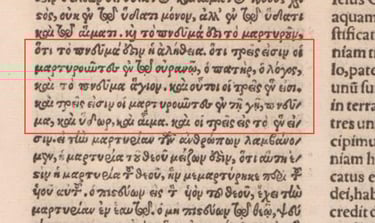 σός, οὐκ ἐν τῷ ὕδατι μόνον, ἀλλ' ἐν τῷ ὕδατι
καὶ τῷ αἵματι. καὶ τὸ πνεῦμά ἐστι τὸ μαρτυροῦν,
ὅτι τὸ πνεῦμά ἐστιν ἡ ἀλήθεια. ὅτι τρεῖς εἰσιν οἱ
μαρτυροῦντες ἐν τῷ οὐρανῷ, ὁ πατήρ, ὁ λόγος,
καὶ τὸ πνεῦμα ἅγιον. καὶ οὗτοι οἱ τρεῖς ἕν εἰσι.
καὶ τρεῖς εἰσιν οἱ μαρτυροῦντες ἐν τῇ γῇ, πνεῦ
μα, καὶ ὕδωρ, καὶ αἷμα. καὶ οἱ τρεῖς εἰς τὸ ἕν εἰ
σιν. εἰ τὴν μαρτυρίαν τῶν ἀνθρώπων λαμβάνο
μεν, ἡ μαρτυρία τοῦ θεοῦ μείζων ἐστίν, ὅτι αὕτη ἐ
σὶν ἡ μαρτυρία τοῦ θεοῦ, ἣν μεμαρτύρηκε περὶ τοῦ
υἱοῦ αὐτοῦ. ὁ πιστεύων εἰς τὸν υἱὸν τοῦ θεοῦ, ἔχει τὴν
μαρτυρίαν ἐν ἑαυτῷ. ὁ μὴ πιστεύων τῷ θεῷ, ψεύ
aquam
stificat
niam t
lo, pate
unū su
in terra
tres un
cipimu
niam h
catus e
dei, hab
credit